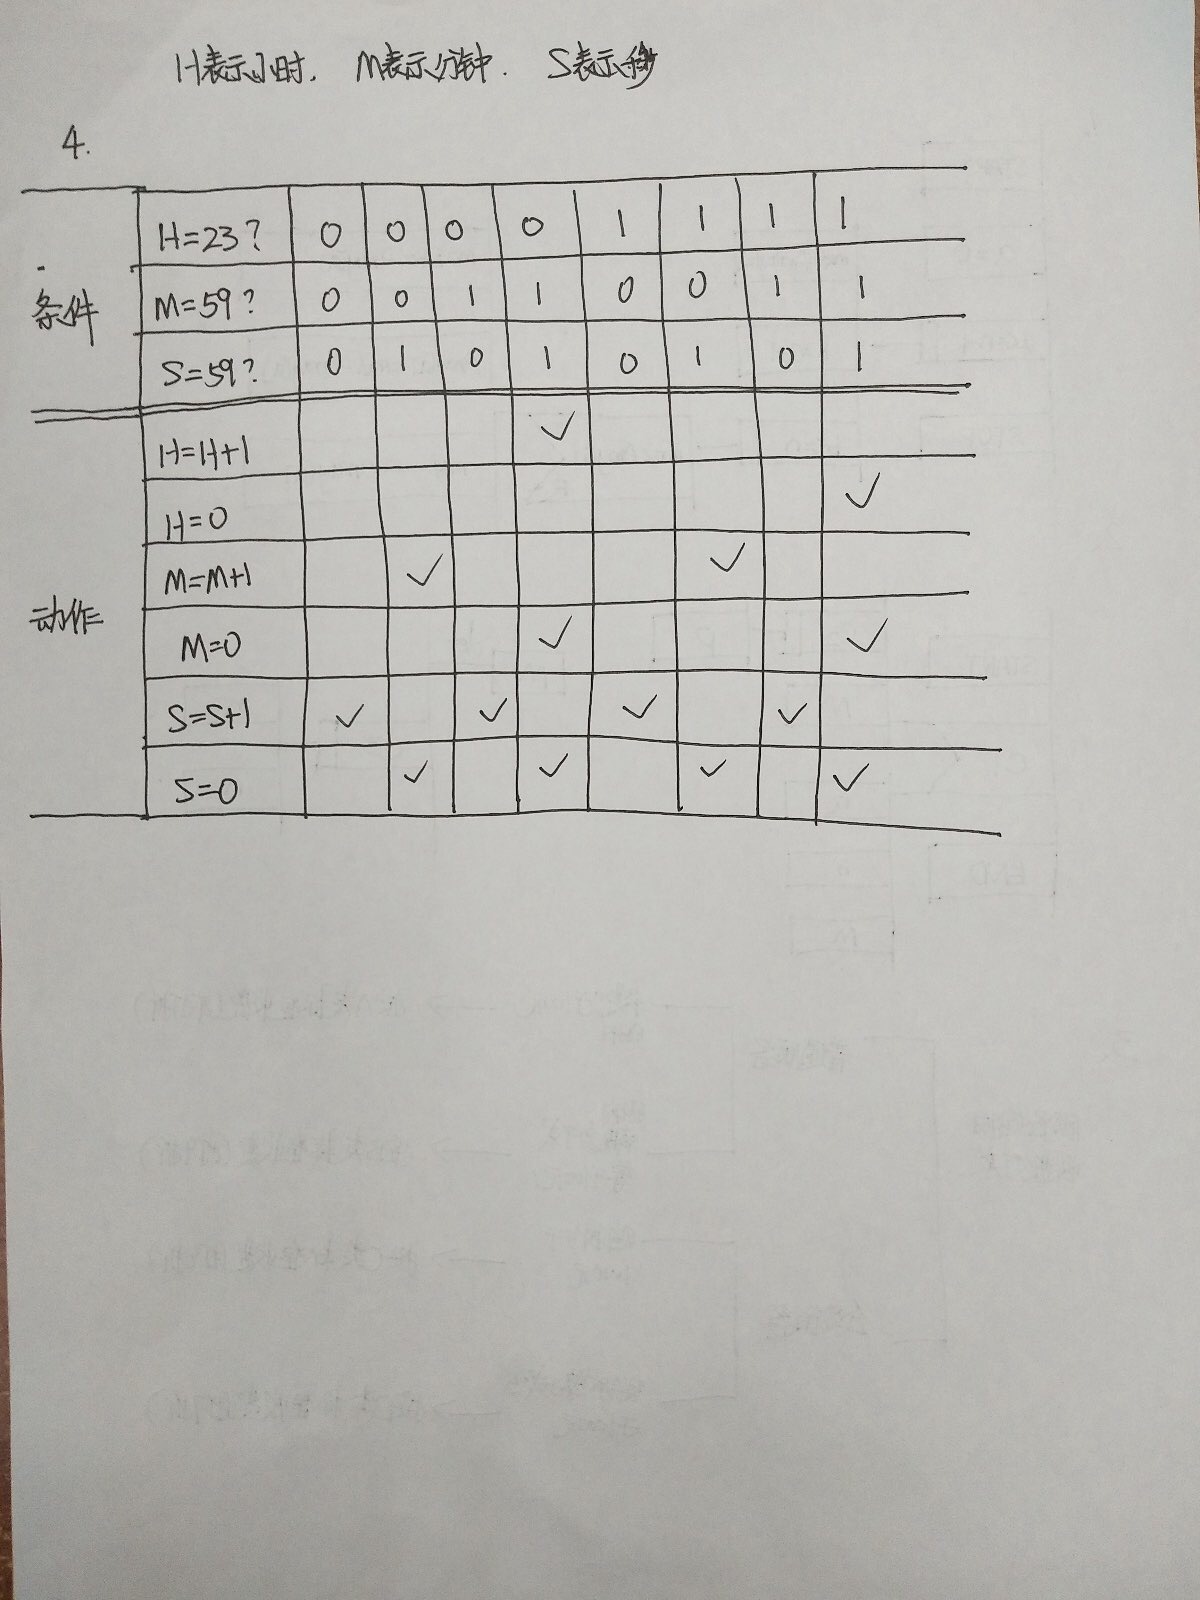 H表示小时. M表示分钟. S表示秒
4.
条件
H=23? 0 0 0 0 1 1 1 1
M=59? 0 0 1 1 0 0 1 1
S=59? 0 1 0 1 0 1 0 1
动作
H=H+1 ✓
H=0 ✓
M=M+1 ✓ ✓
M=0 ✓ ✓
S=S+1 ✓ ✓ ✓ ✓
S=0 ✓ ✓ ✓ ✓